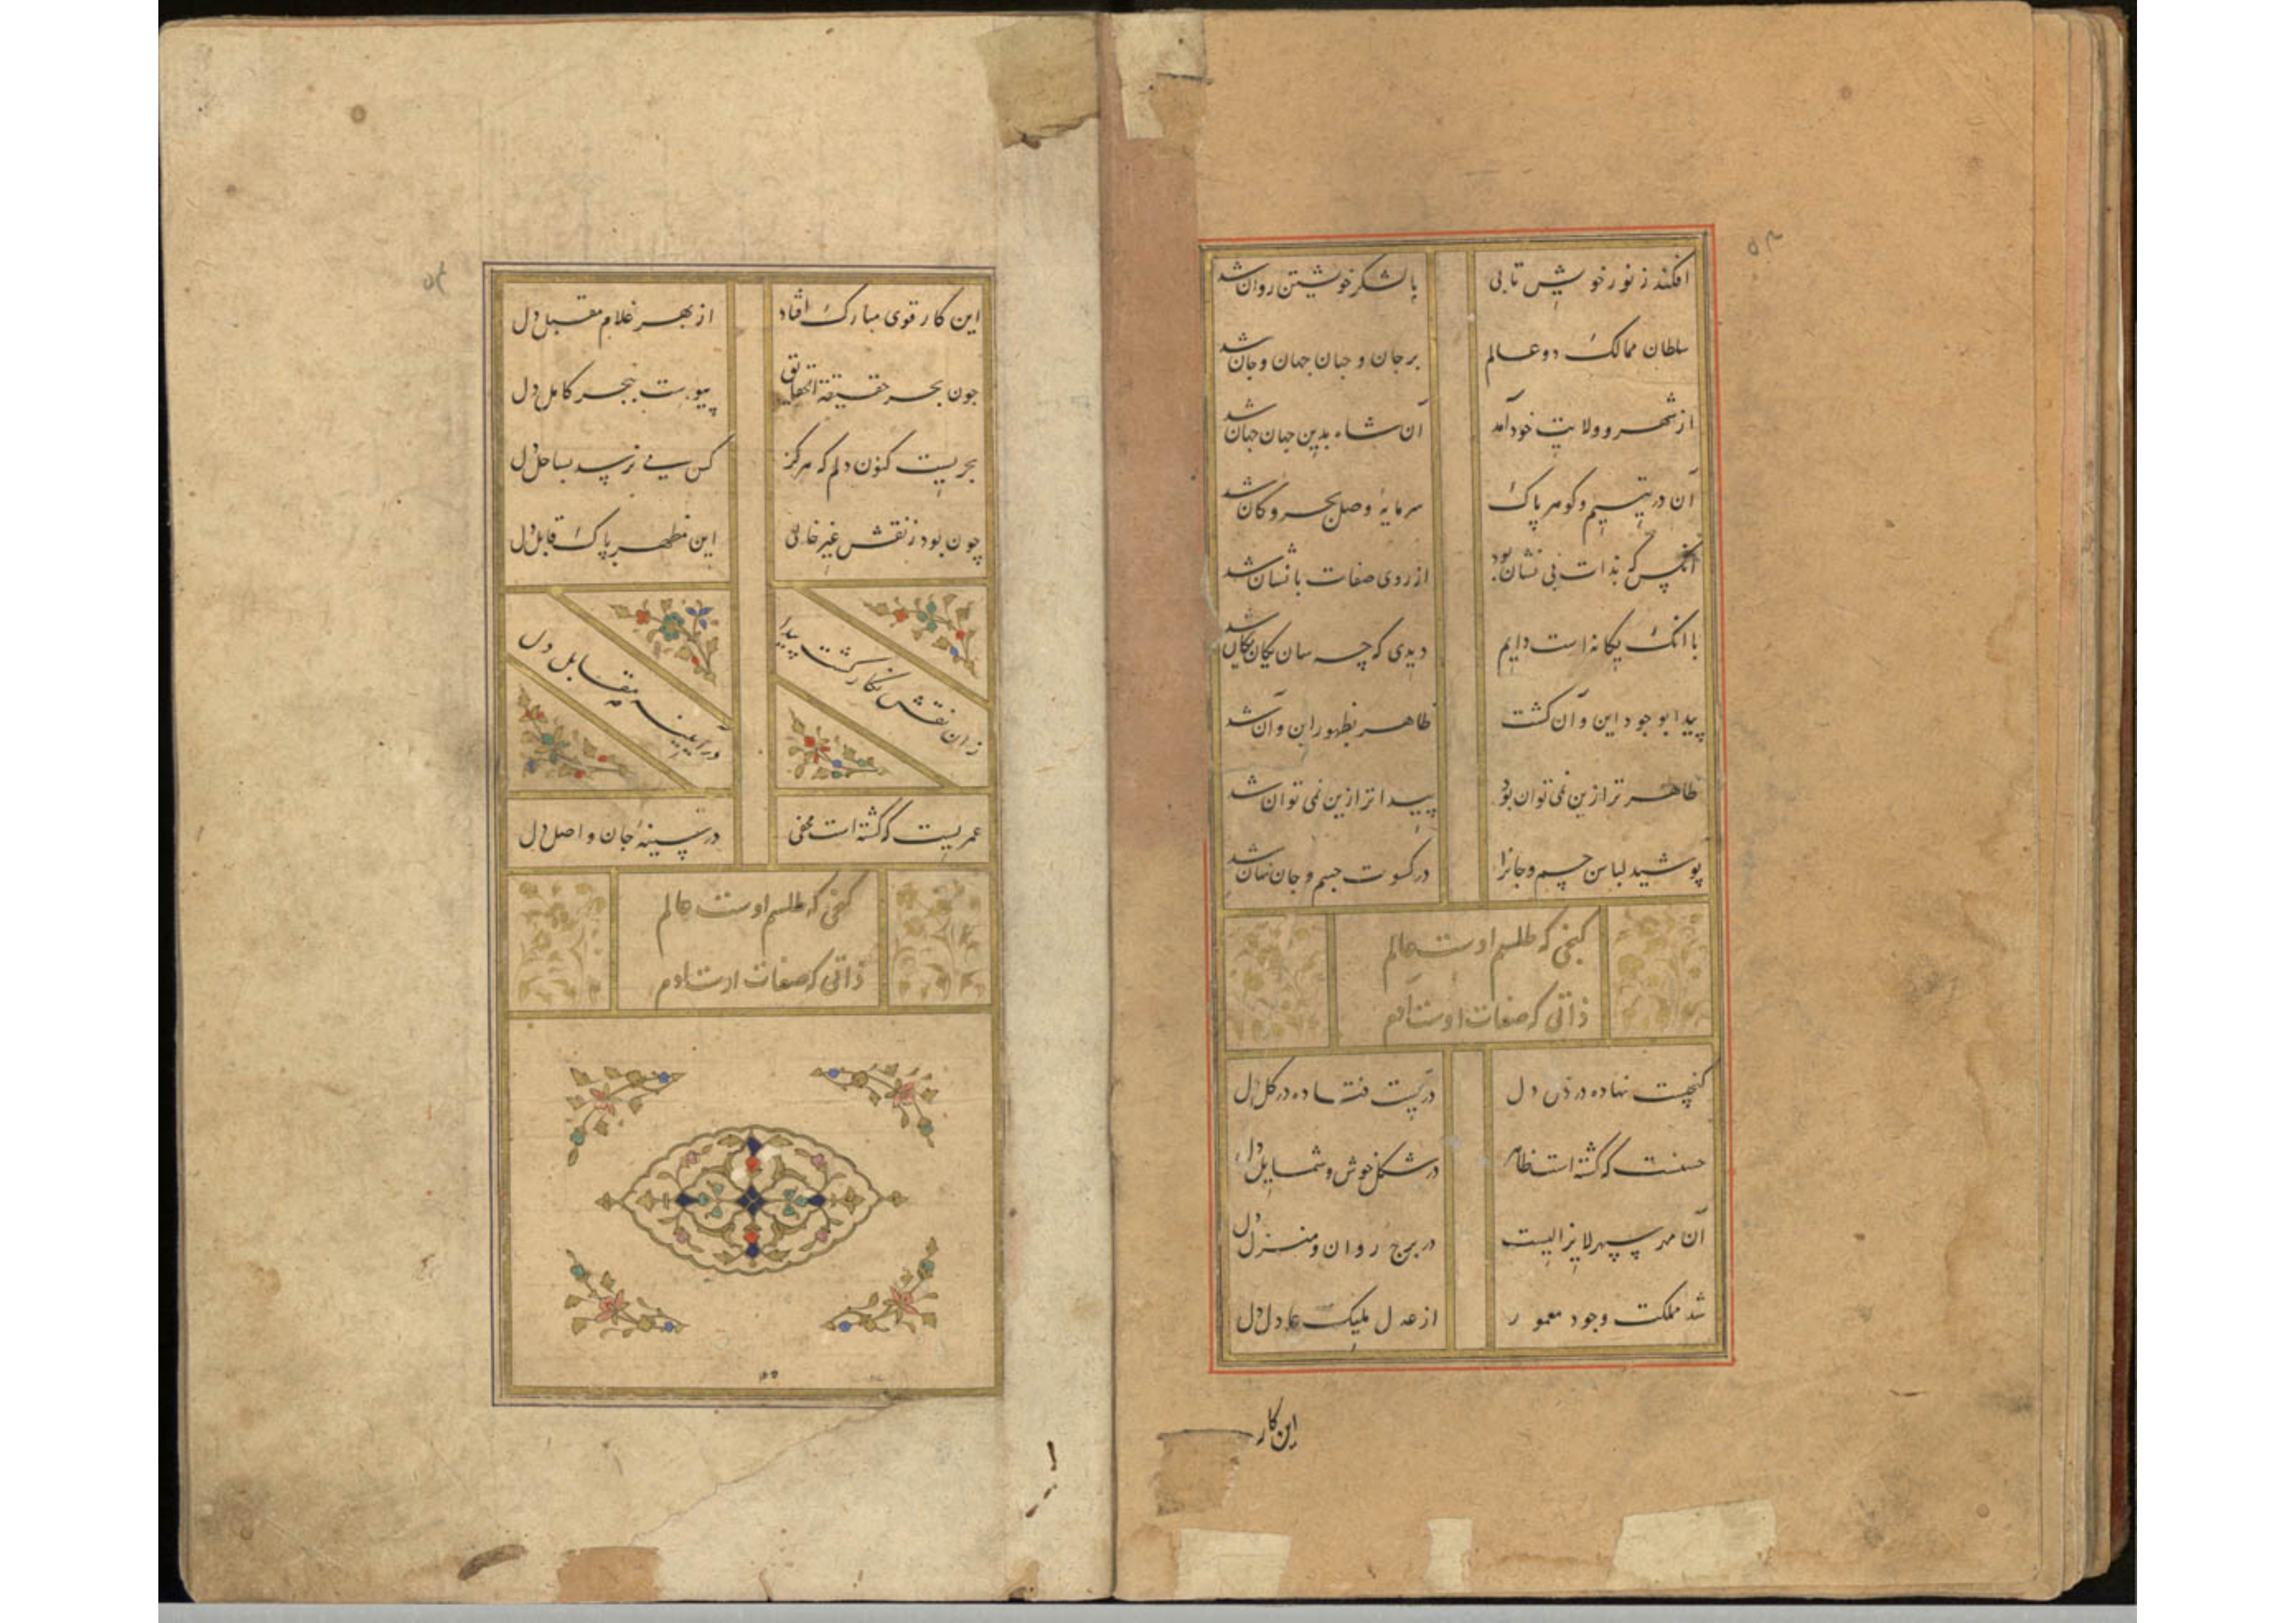 ۵۳
افکند ز نور خویش تابی با لشکر خویشتن روان شد
سلطان ممالک دو عالم بر جان و جهان جهان و جان شد
از شهر و ولایت خود آمد آن شاه بدین جهان جهان شد
آن در یتیم و کوهر پاک سرمایهٔ وصل بحر و کان شد
آنکس که بذات بی نشان بود از روی صفات با نشان شد
با انک یکانه است دایم دیدی که چه سان یکان یکان شد
پیدا بوجود این و آن کشت ظاهر بظهور این و آن شد
ظاهر تر ازین نمی توان بود پیدا تر ازین نمی توان شد
پوشید لباس جسم و جانرا در کسوت جسم و جان نهان شد
کنجی که طلسم اوست عالم
ذاتی که صفات اوست آدم
کنجیست نهاده در دل در یست فتاده در کل دل
حسنت که کشته است ظاهر در شکل خوش و شمایل دل
آن مهر سپهر لایزالیست در برج روان و منزل دل
شد مملکت وجود معمور از عدل ملیک عادل دل
این کار
این کار قوی مبارک افتاد از بهر غلام مقبل دل
جون بحر حقیقة الحقایق پیوست ببحر کامل دل
بحریست کنون دلم که هرکز کس می نرسد بساحل دل
چون بود ز نقش غیر خالی این مظهر پاک قابل دل
زان نقش نکار کشت پیدا در آینهٔ مقابل دل
عمریست که کشته است مخفی در سینهٔ جان و اصل دل
کنجی که طلسم اوست عالم
ذاتی که صفات اوست آدم